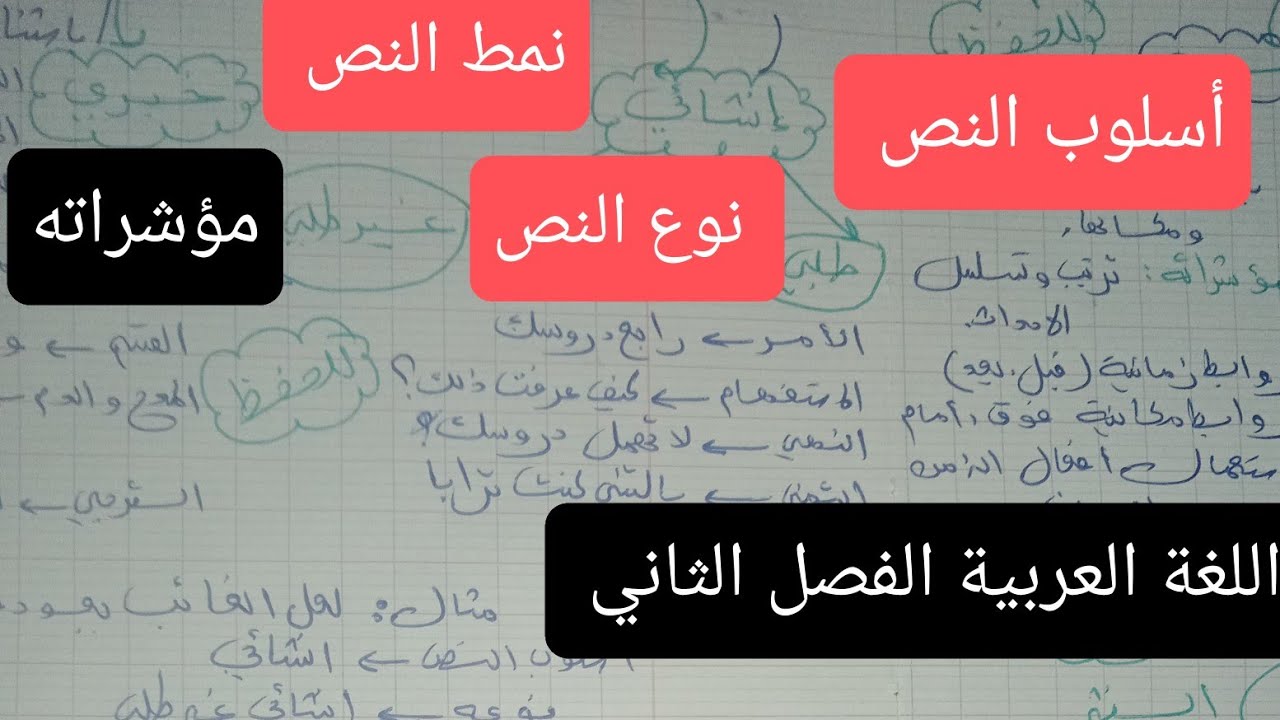 نمط النص
أسلوب النص
نوع النص
مؤشراته
اللغة العربية الفصل الثاني
للحفظ
إنشائي
خبري
طلبي
غير طلبي
ترتيب وتسلسل
الاحداث.
زمانية (قبل، بعد)
مكانية فوق، أمام
أفعال
الأمر ← راجع دروسك
الاستفهام ← كيف عرفت ذلك؟
النهي ← لا تهمل دروسك
التمني ← ياليتني كنت ترابا
للحفظ
القسم ←
المدح والذم ←
الترجي ←
مثال: لعل الغائب يعود
أسلوب النص ← انشائي
نوعه ← انشائي غير طلبي